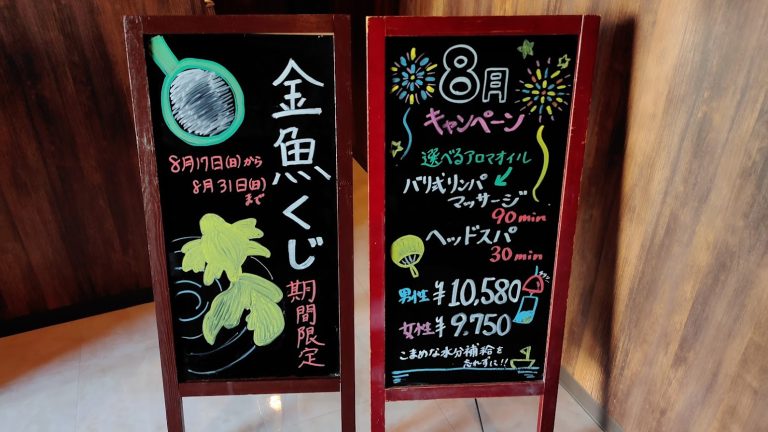 金魚くじ
8月17日(日)から
8月31日(日)
まで
期間限定
8月
キャンペーン
選べるアロマオイル
バリ式リンパ
マッサージ
90min
ヘッドスパ
30min
男性 ¥10,580
女性 ¥9,750
こまめな水分補給を
忘れずに!!